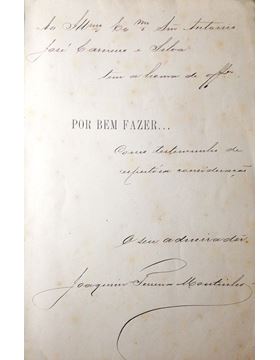 Ao Illmo Exmo Snr Antonio
José Carneiro e Silva
tem a honra de offer
POR BEM FAZER...
Como testemunho de
respeitosa consideração
O seu admirador
Joaquim Moutinho